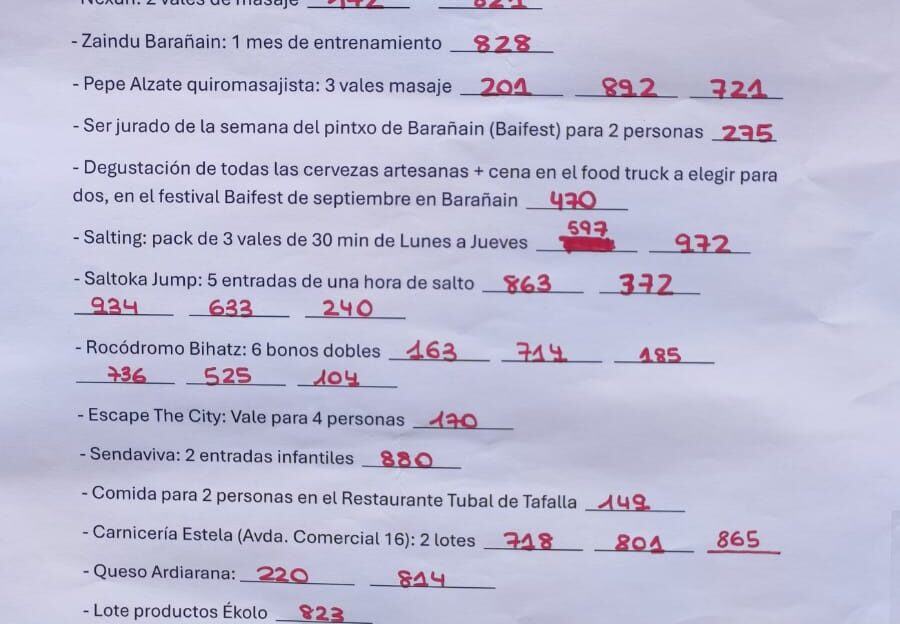 - Zaindu Barañain: 1 mes de entrenamiento 828
- Pepe Alzate quiromasajista: 3 vales masaje 201 892 721
- Ser jurado de la semana del pintxo de Barañain (Baifest) para 2 personas 275
- Degustación de todas las cervezas artesanas + cena en el food truck a elegir para
dos, en el festival Baifest de septiembre en Barañain 470
- Salting: pack de 3 vales de 30 min de Lunes a Jueves 597 972
- Saltoka Jump: 5 entradas de una hora de salto 863 372
934 633 240
- Rocódromo Bihatz: 6 bonos dobles 163 714 185
736 525 104
- Escape The City: Vale para 4 personas 170
- Sendaviva: 2 entradas infantiles 880
- Comida para 2 personas en el Restaurante Tubal de Tafalla 149
- Carnicería Estela (Avda. Comercial 16): 2 lotes 718 801 865
- Queso Ardiarana: 220 814
- Lote productos Ékolo 823